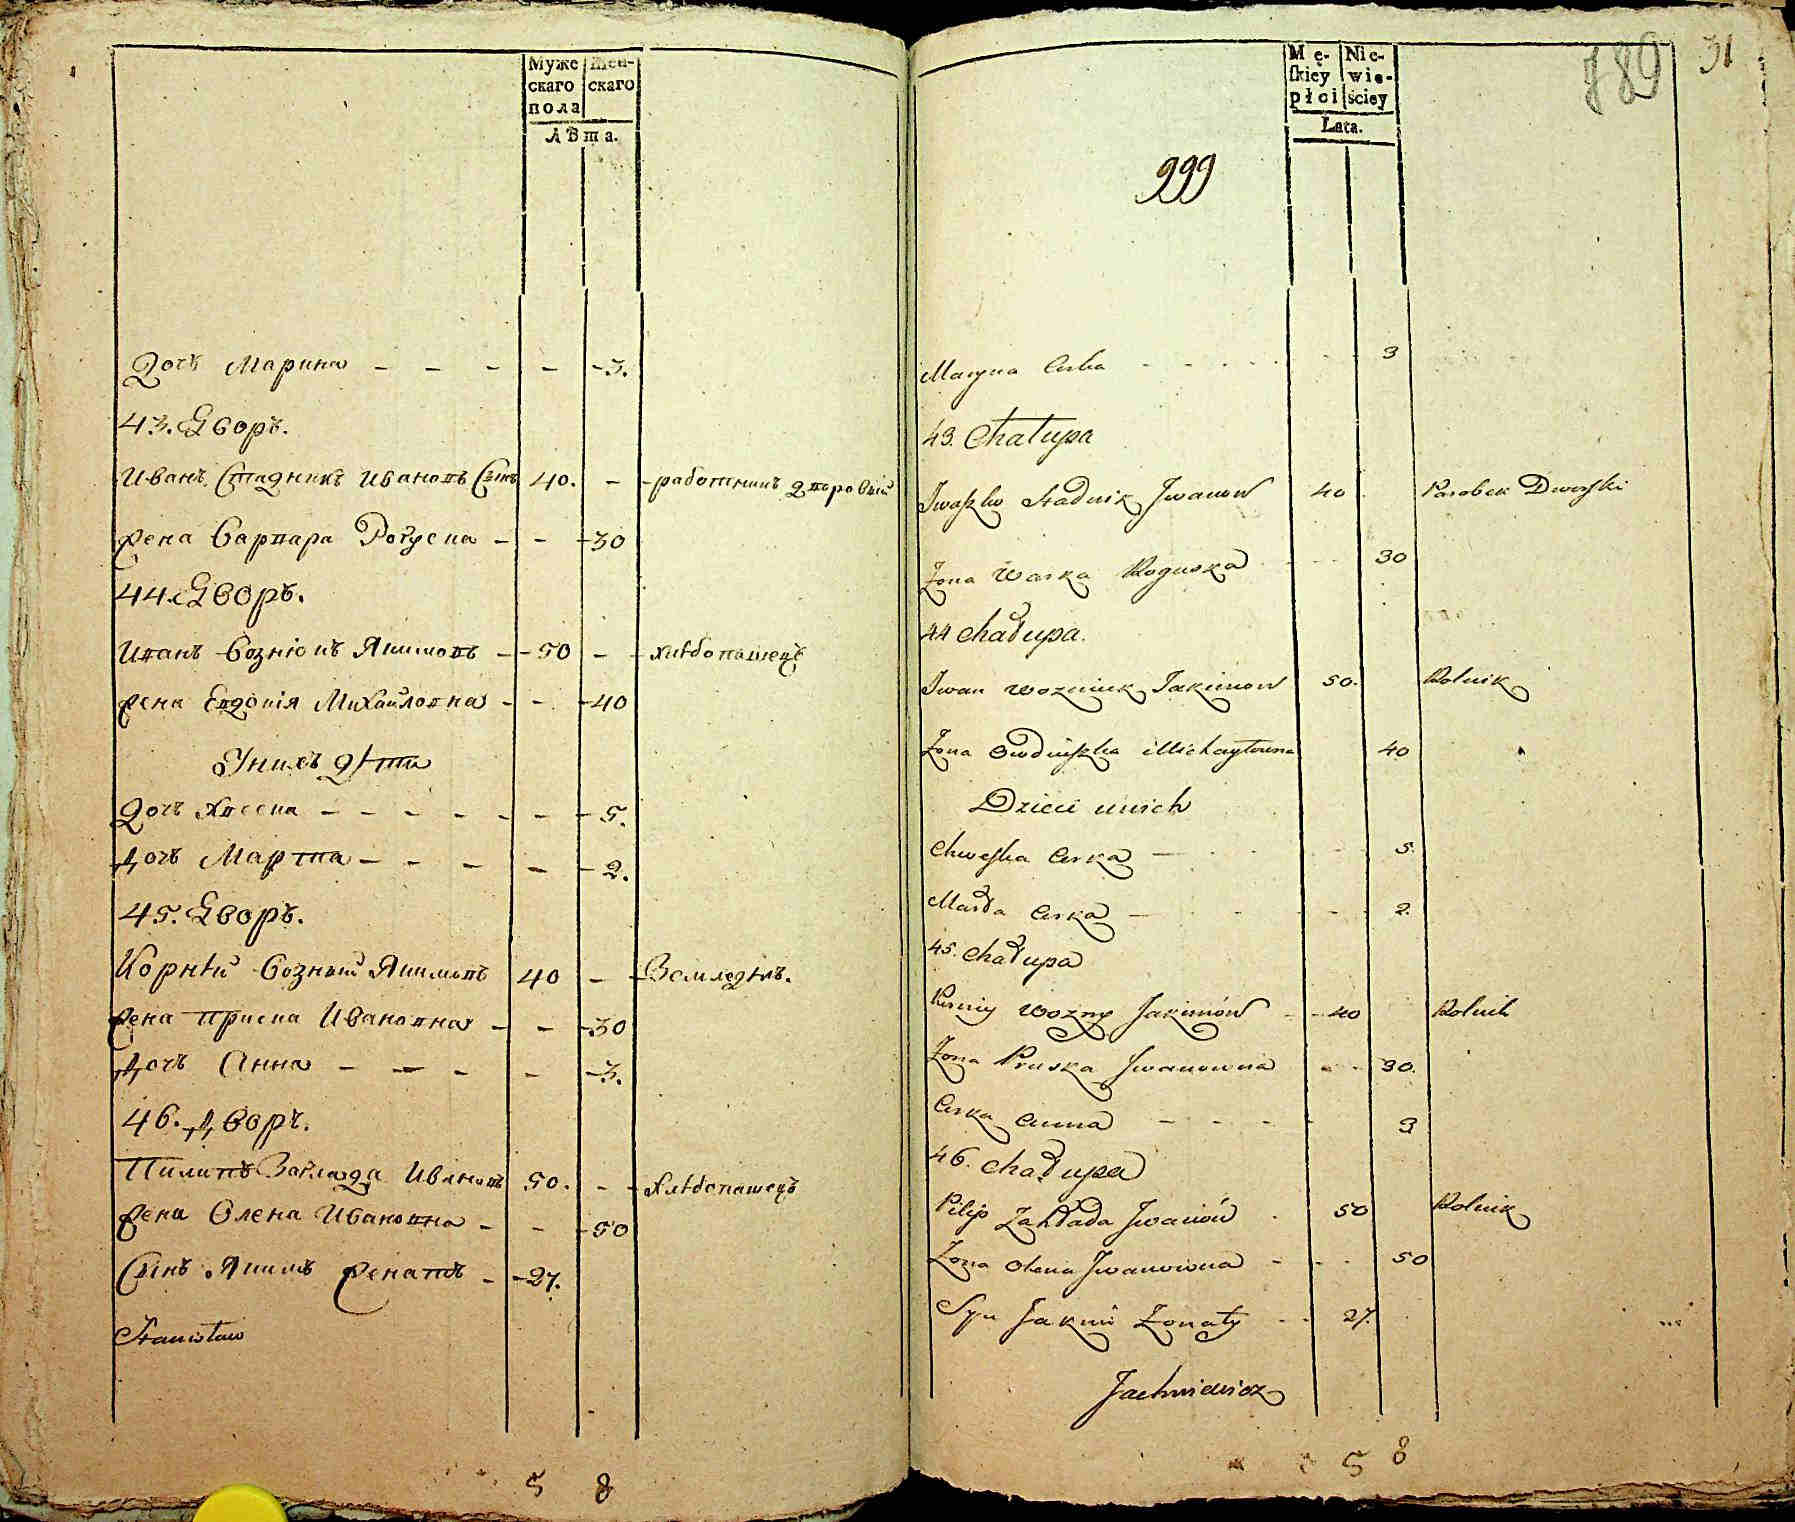 Муже Жен-
скаго скаго
пола
Лѣта.
Дочь Марина - - - - - 3.
43. Дворъ.
Иванъ Стадникъ Ивановъ Сынъ 40. - - работникъ дворовый
Жена Варвара Рогуска - - - 30
44. Дворъ.
Иванъ Вознюкъ Якимовъ - - 50 - - хлѣбопашецъ
Жена Евдокія Михайловна - - - 40
У нихъ дѣти
Дочь Хвеска - - - - - - - 5.
Дочь Марта - - - - - 2.
45. Дворъ.
Корнѣй Возный Якимовъ 40 - - Земледѣл.
Жена Приска Ивановна - - - 30
Дочь Анна - - - - - 3.
46. Дворъ.
Пилипъ Заклада Ивановъ 50. - - хлѣбопашецъ
Жена Олена Ивановна - - - 50
Сынъ Якимъ Женатъ - - 27.
Stanisław
5 8
Mę- Nie-
skiey wie-
płci ściey
Lata.
789 31
999
Maryna Curka - - - - - - 3
43. Chałupa
Iwaszko Stadnik Jwanow 40 Parobek Dworski
Żona Warka Roguska - - - 30
44 Chałupa.
Iwan Wozniuk Jakimow 50. Rolnik
Żona Owdiuszka Michayłowna 40
Dzieci unich
Chweska Curka - - - - 5.
Marta Curka - - - - 2.
45. Chałupa
Korniy Wozny Jakimów - - 40 Rolnik
Żona Pruska Jwanowna - - 30.
Curka Anna - - - - 3
46. Chałupa
Pilip Zakłada Jwanów - 50 Rolnik
Żona Olena Jwanowna - - - 50
Syn Jakim Żonaty - - 27.
Jachniewicz
5 8